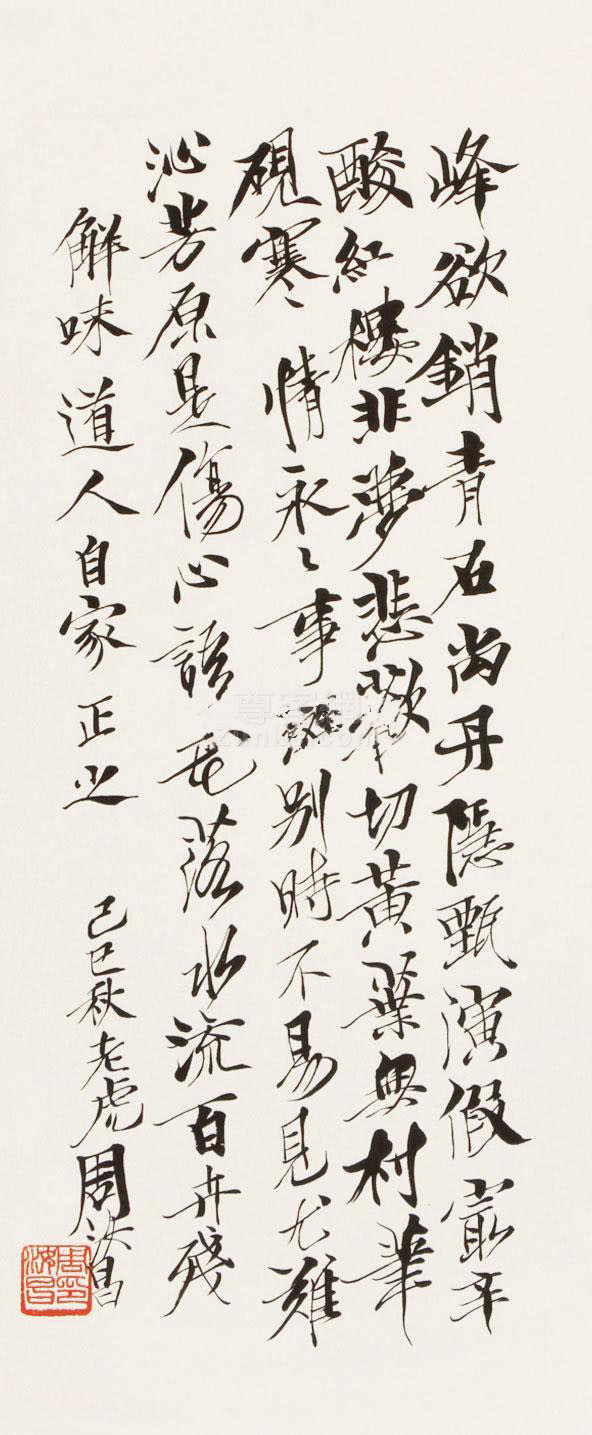 峰欲銷青石尚丹隱甄演假最辛
酸紅樓非夢悲歡切黃葉無村筆
硯寒情永〻事別時不易見尤難
沁芳原是傷心語花落水流百卉殘
解味道人自家正之 己巳秋老虎周汝昌